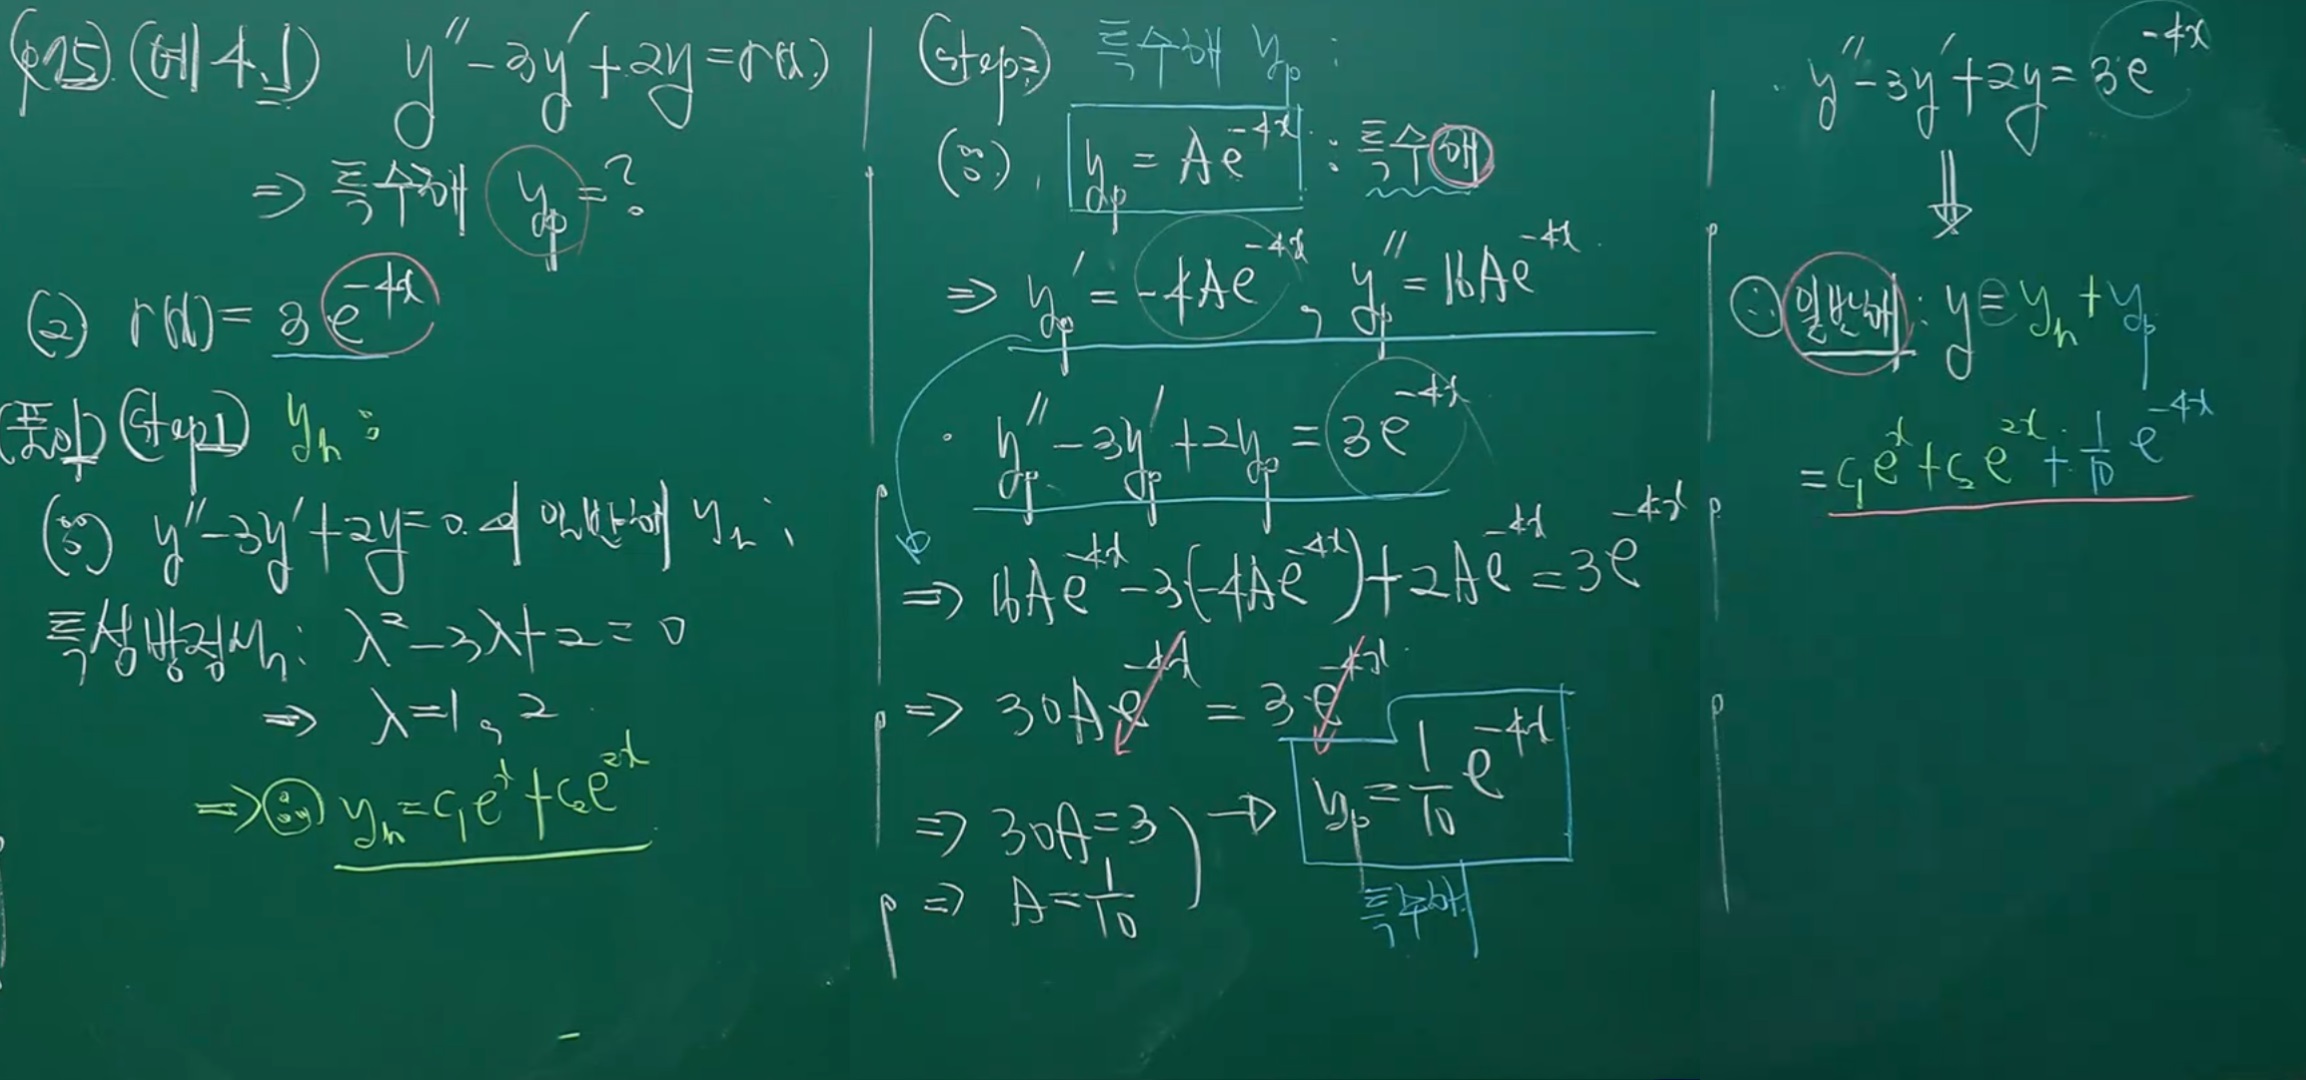 (p15) (예 4.1) y'' - 3y' + 2y = r(x)
⇒ 특수해 y_p = ?
(2) r(x) = 3e^{-4x}
(풀이) (step1) y_h :
(∵) y'' - 3y' + 2y = 0 의 일반해 y_h ;
특성방정식 : λ² - 3λ + 2 = 0
⇒ λ = 1, 2
⇒ ∴ y_h = c₁e^x + c₂e^{2x}
(step2) 특수해 y_p :
(∵) y_p = Ae^{-4x} : 특수해
⇒ y_p' = -4Ae^{-4x}, y_p'' = 16Ae^{-4x}
· y_p'' - 3y_p' + 2y_p = 3e^{-4x}
⇒ 16Ae^{-4x} - 3(-4Ae^{-4x}) + 2Ae^{-4x} = 3e^{-4x}
⇒ 30A·e^{-4x} = 3·e^{-4x}
⇒ 30A = 3
⇒ A = 1/10
→ y_p = 1/10 e^{-4x}
특수해
· y'' - 3y' + 2y = 3e^{-4x}
⇓
∴ 일반해 : y = y_h + y_p
= c₁e^x + c₂e^{2x} + 1/10 e^{-4x}